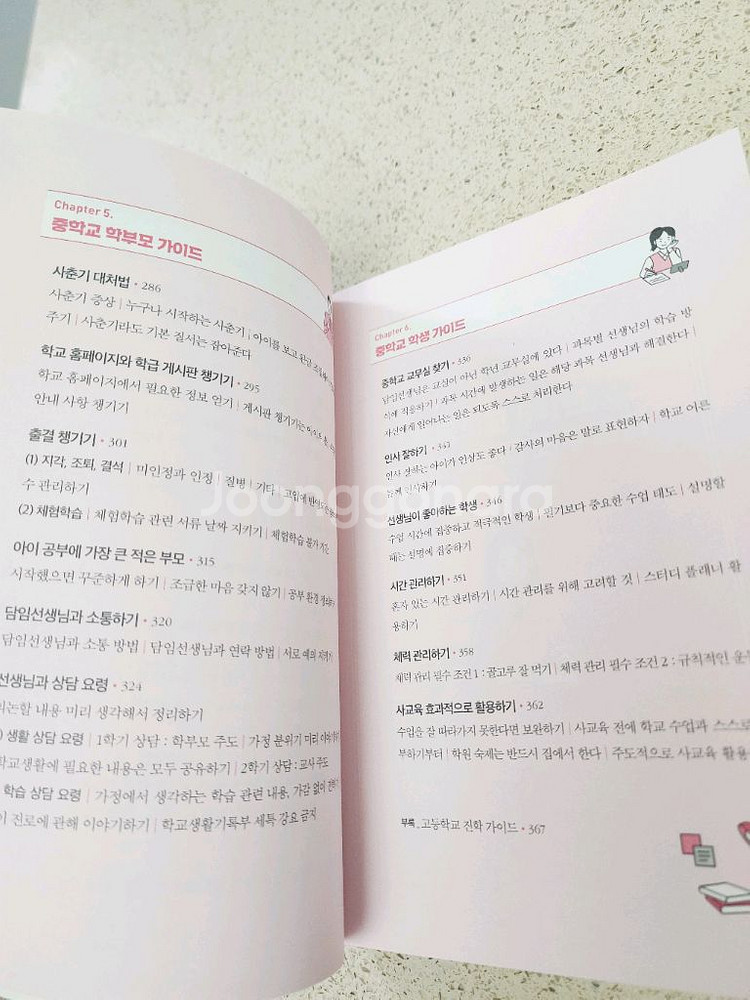 Chapter 5.
중학교 학부모 가이드
사춘기 대처법 • 286
사춘기 증상 | 누구나 시작하는 사춘기 | 아이를 보고 판단
주기 | 사춘기라도 기본 질서는 잡아준다
학교 홈페이지와 학급 게시판 챙기기 • 295
학교 홈페이지에서 필요한 정보 얻기 | 게시판 챙기기는
안내 사항 챙기기
출결 챙기기 • 301
(1) 지각, 조퇴, 결석 | 미인정과 인정 | 질병 | 기타 |
수 관리하기
(2) 체험학습 | 체험학습 관련 서류 날짜 지키기 | 체험학습 불가
아이 공부에 가장 큰 적은 부모 • 315
시작했으면 꾸준하게 하기 | 조급한 마음 갖지 않기 | 공부 환경
담임선생님과 소통하기 • 320
담임선생님과 소통 방법 | 담임선생님과 연락 방법 | 서로 예의 지키기
선생님과 상담 요령 • 324
논할 내용 미리 생각해서 정리하기
) 생활 상담 요령 | 1학기 상담 : 학부모 주도 | 가정 분위기 미리
학교생활에 필요한 내용은 모두 공유하기 | 2학기 상담 : 교사 주도
학습 상담 요령 | 가정에서 생각하는 학습 관련 내용, 가감 없이
이 진로에 관해 이야기하기 | 학교생활기록부 세특 강요 금지
Chapter 6.
중학교 학생 가이드
중학교 교무실 찾기 • 336
담임선생님은 교실이 아닌 학년 교무실에 있다 | 과목별 선생님의 학습 방
식에 적응하기 | 과목 시간에 발생하는 일은 해당 과목 선생님과 해결한다 |
자신에게 일어나는 일은 되도록 스스로 처리한다
인사 잘하기 • 341
인사 잘하는 아이가 인상도 좋다 | 감사의 마음은 말로 표현하자 | 학교 어른
들께 인사하기
선생님이 좋아하는 학생 • 346
수업 시간에 집중하고 적극적인 학생 | 필기보다 중요한 수업 태도 | 설명할
때는 설명에 집중하기
시간 관리하기 • 351
혼자 있는 시간 관리하기 | 시간 관리를 위해 고려할 것 | 스터디 플래너 활
용하기
체력 관리하기 • 358
체력 관리 필수 조건 1 : 골고루 잘 먹기 | 체력 관리 필수 조건 2 : 규칙적인 운동
사교육 효과적으로 활용하기 • 362
수업을 잘 따라가지 못한다면 보완하기 | 사교육 전에 학교 수업과 스스로
부하기부터 | 학원 숙제는 반드시 집에서 한다 | 주도적으로 사교육 활용
부록. 고등학교 진학 가이드 • 367
Joonggonara